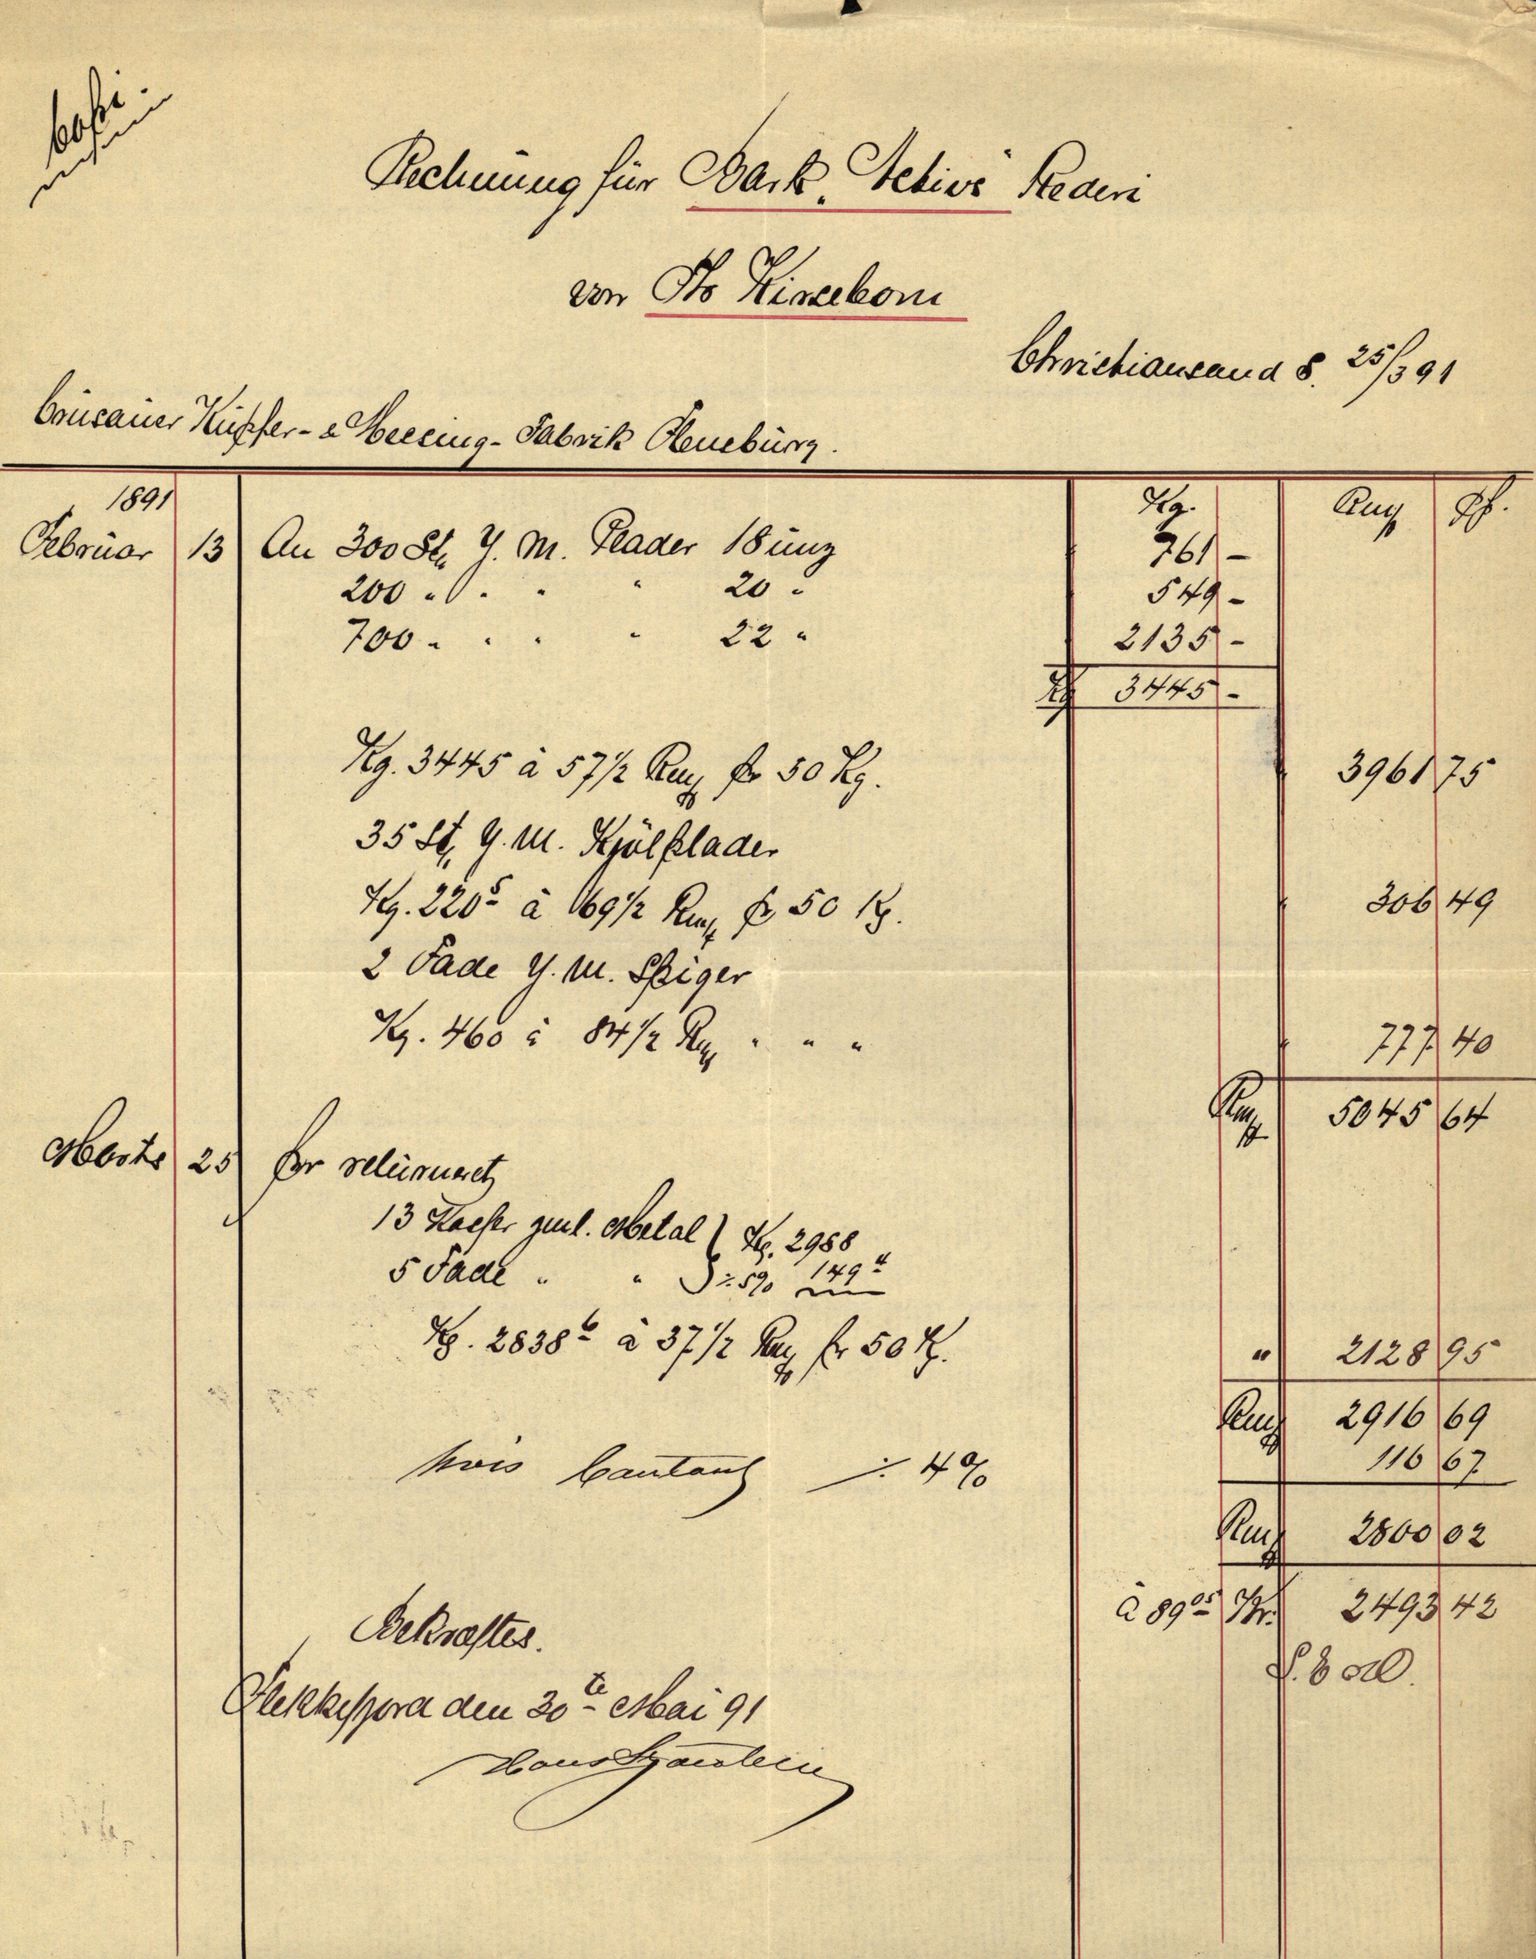 Copi.
Rechnung für Bark „Active" Rederi
von
Christiansand S. 25/3 91
Crusauer Kupfer- & Messing-Fabrik Flensburg.
1891 Kg. Rmk Pf.
Februar 13 An 300 St. Y. M. Plader 18 unz 761 -
200 " " " " 20 " 549 -
700 " " " " 22 " 2135 -
Kg 3445 -
Kg. 3445 à 57 1/2 Rmk pr 50 Kg. 3961 75
35 St. Y. M. Kjölplader
Kg. 220⁵ à 69 1/2 Rmk pr 50 Kg. 306 49
2 Fade Y. M. Spiger
Kg. 460 à 84 1/2 Rmk " " " 777 40
Rmk 5045 64
Marts 25 pr returneret
13 Kasser gml. Metal } Kg. 2988
5 Fade " " } ÷ 5% 149⁴
Kg. 2838⁶ à 37 1/2 Rmk pr 50 Kg. " 2128 95
Rmk 2916 69
hvis Contant ÷ 4% 116 67
Rmk 2800 02
à 89⁰⁵ Kr. 2493 42
Bekræftes.
Flekkefjord den 30te Mai 91